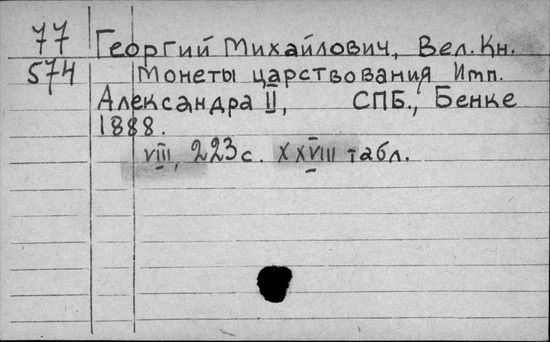 77 Георгий Михайлович, Вел. Кн.
574 Монеты царствования Имп.
Александра II, СПБ., Бенке
1888.
VIII, 223 с. XXVIII табл.